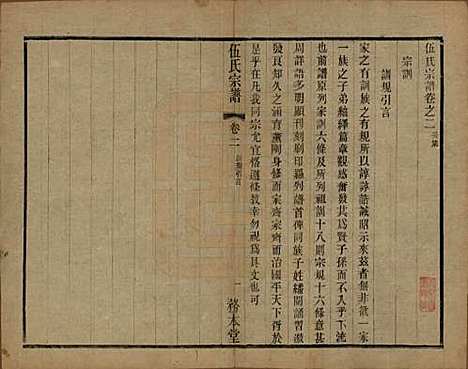 伍氏宗譜卷之二
宗訓
訓規引言
家之有訓族之有規所以諄諄誥誡昭示來茲者無非欲一
一族之子弟紬繹篇章觀感奮發其為賢子孫而不下流
也前譜原列家訓六條及所列祖訓十八則宗規十六條甚
周詳語多明顯刊刻刷印羅列譜首俾同族子姓繙閱誦習激
發良知久之涵育薰陶身修家齊家齊而治國平天下得於
是乎在凡我同宗尤宜恪遵條教幸勿視為具文也可
伍氏宗譜
卷二
訓規引言
一
務本堂